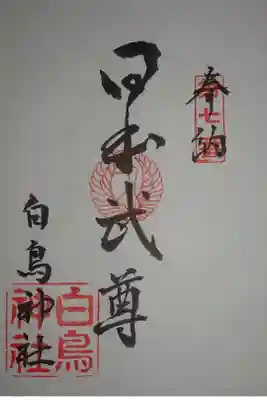 奉納
日本武尊
白鳥神社
白鳥
神社